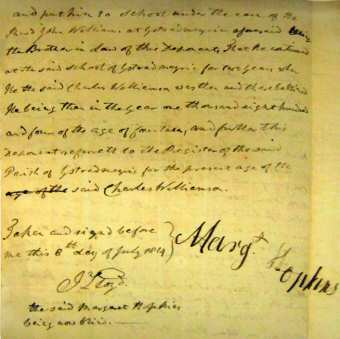 and put him to School under the care of the
Revd John Williams at Ystradmeyric aforesaid being
the Brother in Law of this Deponent, that he continued
at the said School of Ystradmeyric for two years, when
He the said Charles Williamson was then and there
He being then in the year one thousand eight hundred
and four of the age of fourteen, and further this
deponent refereth to the Register of the said
Parish of Ystradmeyric for the present age of the
age of the said Charles Williamson.
Taken and signed before
me this 8th day of July 1814
Margt Hopkins
Js Lloyd.
the said Margaret Hopkins
being now blind.